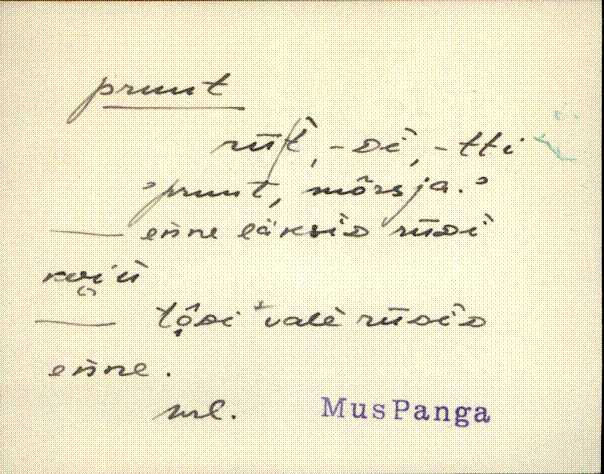 pruut
rüt̀, -ɒi̇̀, -tti
’pruut, mõrsja.’
— eǹne läksiɒ rüɒi
koi̮ü
— tõ̭ɒi valè rüɒiɒ
eǹne.
ml. MusPanga